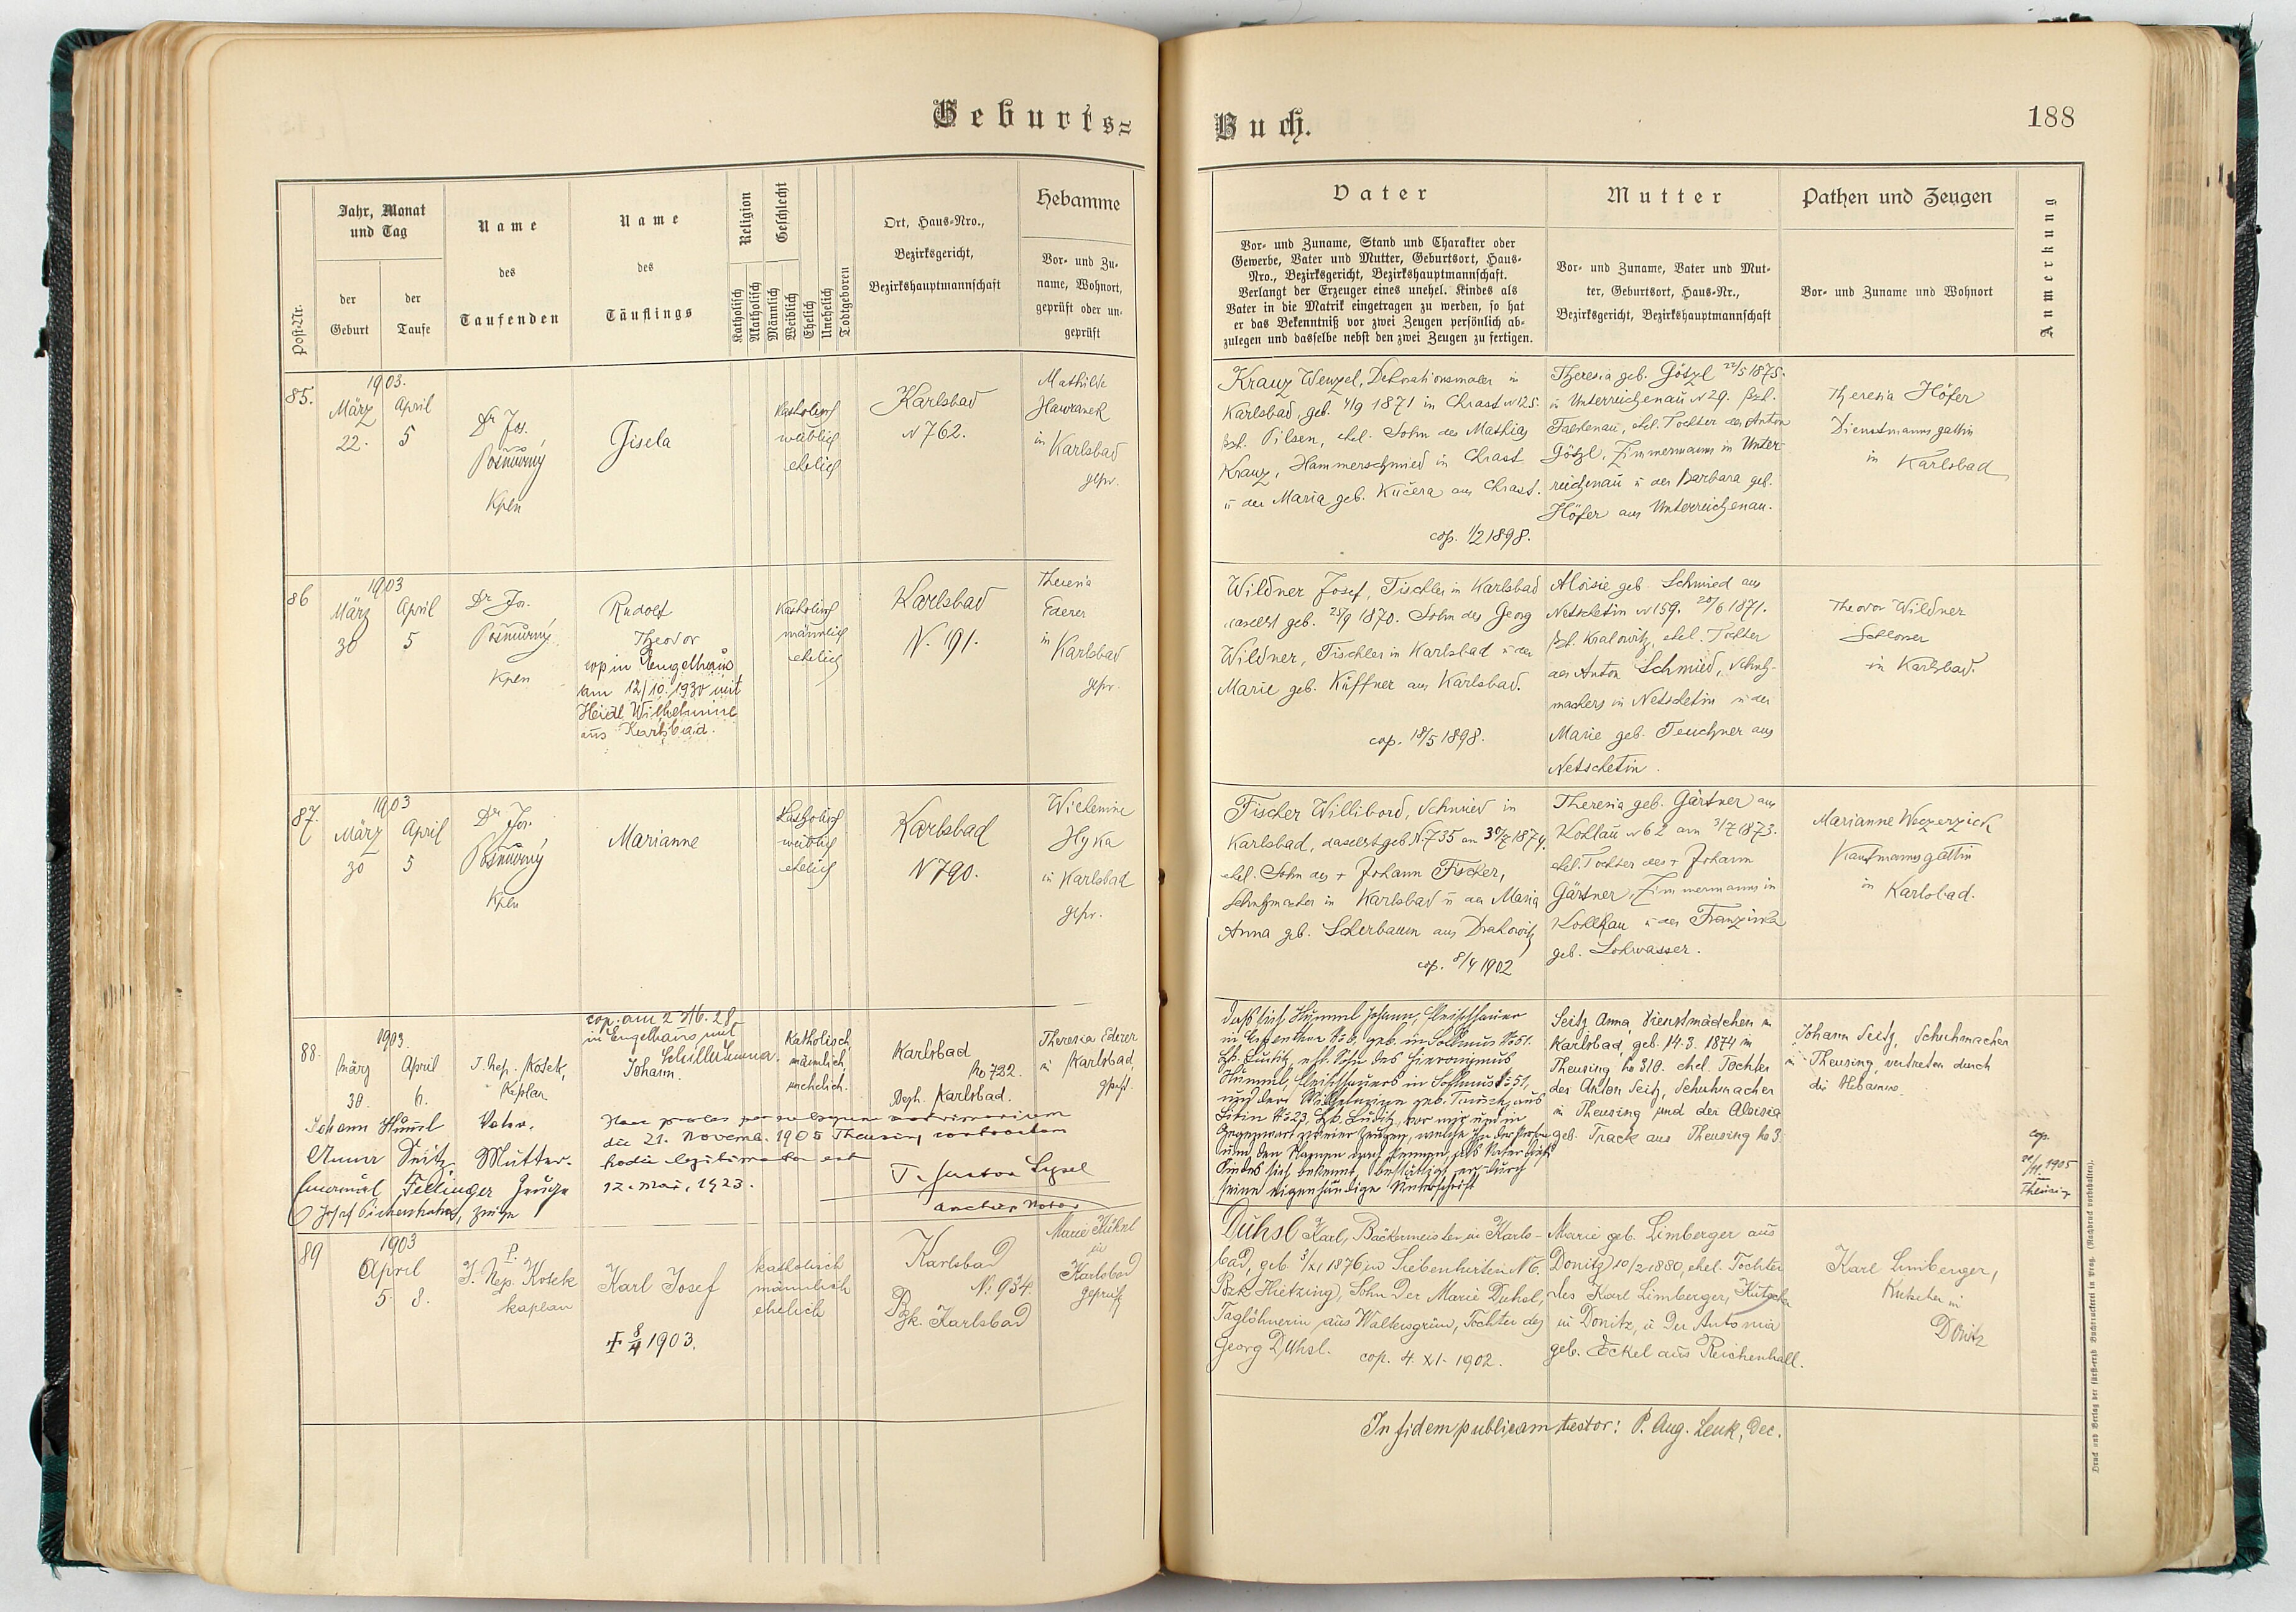 Geburts=
Buch.
188
Post-Nr.
Jahr, Monat
und Tag
der
Geburt
der
Taufe
Name
des
Taufenden
Name
des
Täuflings
Religion
Katholisch
Akatholisch
Geschlecht
Männlich
Weiblich
Ehelich
Unehelich
Todtgeboren
Ort, Haus=Nro.,
Bezirksgericht,
Bezirkshauptmannschaft
Hebamme
Vor= und Zu=
name, Wohnort,
geprüft oder un=
geprüft
Vater
Vor= und Zuname, Stand und Charakter oder
Gewerbe, Vater und Mutter, Geburtsort, Haus=
Nro., Bezirksgericht, Bezirkshauptmannschaft.
Verlangt der Erzeuger eines unehel. Kindes als
Vater in die Matrik eingetragen zu werden, so hat
er das Bekenntniß vor zwei Zeugen persönlich ab=
zulegen und dasselbe nebst den zwei Zeugen zu fertigen.
Mutter
Vor= und Zuname, Vater und Mut=
ter, Geburtsort, Haus=Nr.,
Bezirksgericht, Bezirkshauptmannschaft
Pathen und Zeugen
Vor= und Zuname und Wohnort
Anmerkung
85.
1903.
März
22.
April
5
Dr Jos.
Pošmůrný
Kpln
Gisela
Katholisch
weiblich
ehelich
Karlsbad
N 762.
Mathilde
Hawranek
in Karlsbad
gepr.
Kranz Wenzel, Dekorationsmaler in
Karlsbad, geb. 4/9 1871 in Chrast N 125.
Bzh. Pilsen, ehel. Sohn des Mathias
Kranz, Hammerschmied in Chrast
u der Maria geb. Kučera aus Chrast.
cop. 1/2 1898.
Theresia geb. Götzl 22/5 1875.
in Unterreichenau N 29. Bzh.
Falkenau, ehel. Tochter des Anton
Götzl, Zimmermanns in Unter-
reichenau u der Barbara geb.
Höfer aus Unterreichenau.
Theresia Höfer
Dienstmannsgattin
in Karlsbad
86
1903
März
30
April
5
Dr Jos.
Pošmůrný
Kpln
Rudolf
Theodor
cop in Engelhaus
am 12/10.1930 mit
Heidl Wilhelmine
aus Karlsbad.
Katholisch
männlich
ehelich
Karlsbad
N. 191.
Theresia
Ederer
in Karlsbad
gepr.
Wildner Josef, Tischler in Karlsbad
daselbst geb. 25/9 1870. Sohn des Georg
Wildner, Tischler in Karlsbad u der
Marie geb. Küffner aus Karlsbad.
cop. 18/5 1898.
Aloisie geb. Schmied aus
Netschetin N 159. 20/6 1871.
Bzh. Kralowitz, ehel. Tochter
des Anton Schmied, Schuh-
machers in Netschetin u der
Marie geb. Teuchner aus
Netschetin.
Theodor Wildner
Schlosser
in Karlsbad.
87.
1903
März
30
April
5
Dr Jos.
Pošmůrný
Kpln
Marianne
Katholisch
weiblich
ehelich
Karlsbad
N 790.
Wilhelmine
Hyka
in Karlsbad
gepr.
Fischer Willibord, Schmied in
Karlsbad, daselbst geb N. 735 am 30/7 1874.
ehel. Sohn des + Johann Fischer,
Schuhmacher in Karlsbad u der Maria
Anna geb. Scherbaum aus Drahowitz
cop. 8/4 1902
Theresia geb. Gärtner aus
Kohlau N 62 am 3/7 1873.
ehel. Tochter des + Johann
Gärtner, Zimmermanns in
Kohlhau u der Franziska
geb. Lohwasser.
Marianne Weczerzick
Kaufmannsgattin
in Karlsbad.
88.
1903.
März
30.
April
6.
J. Nep. Kosek,
Kaplan
in Engelhaus mit
Johann.
katholisch,
männlich,
unehelich.
Karlsbad
No 722.
Bezh. Karlsbad.
Theresia Ederer
in Karlsbad,
gepr.
Johann Huml Vater.
Anna Seitz, Mutter.
die 21. Novemb. 1905 Theusing
hodie legitimata est
12. Mai, 1923.
Daß sich Hummel Johann, Fleischhauer
Hummel, Fleischhauers in
seine eigenhändige Unterschrift
Seitz Anna, Dienstmädchen in
Karlsbad, geb. 14.3.1874 in
Theusing No 310. ehel. Tochter
des Anton Seitz, Schuhmacher
in Theusing und der Aloisia
geb. Track aus Theusing No 3.
Johann Seitz, Schuhmacher
in Theusing, vertreten durch
die Hebamme.
cop.
21/11. 1905
Theusing
89
1903
April
5. 8.
P.
J. Nep. Kosek
Kaplan
Karl Josef
† 8/4 1903.
katholisch
männlich
ehelich
Karlsbad
No. 934.
Bzk. Karlsbad
Marie Kühnl
in
Karlsbad
geprüft
Duhsl Karl, Bäckermeister in Karls-
bad, geb. 3/XI 1876 in Siebenhirten N 6.
Bzk. Hietzing), Sohn der Marie Duhsl,
Taglöhnerin aus Waltersgrün, Tochter des
Georg Duhsl.
cop. 4. XI. 1902.
Marie geb. Limberger aus
Donitz 10/2 1880, ehel. Tochter
des Karl Limberger, Kutscher
in Donitz, u der Antonia
geb. Eckel aus Reichenhall.
Karl Limberger,
Kutscher in
Donitz
In fidem publicam testor: P. Aug. Lenk, Dec.
Druck und Verlag der fürst=erzb. Buchdruckerei in Prag. (Nachdruck vorbehalten).